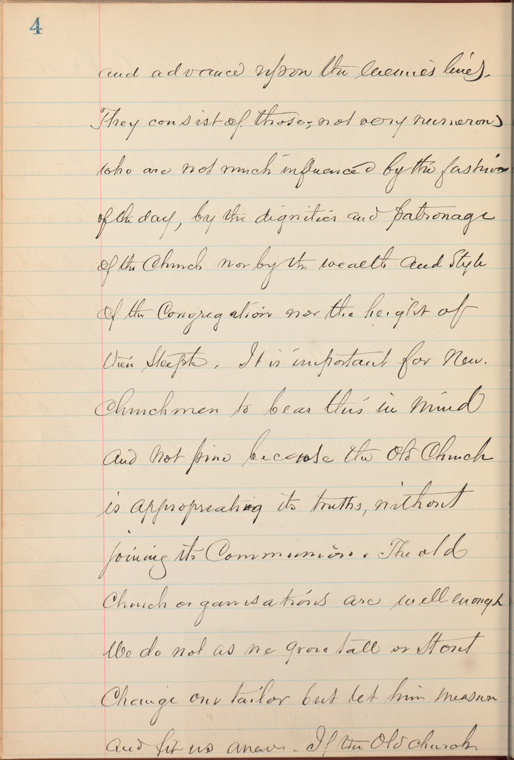 4
and advance upon the enemies lines.
They consist of those, not very numerous
who are not much influenced by the fashion
of the day, by the dignities and patronage
of the Church nor by the wealth and Style
of the Congregation nor the height of
their Steeple. It is important for New.
Churchmen to bear this in Mind
and Not pine because the Old Church
is appropriating its truths, without
joining its Communion. The old
Church organisations are well enough
We do not as we grow tall or Stout
Change our tailor but let him measure
and fit us anew. If the Old church